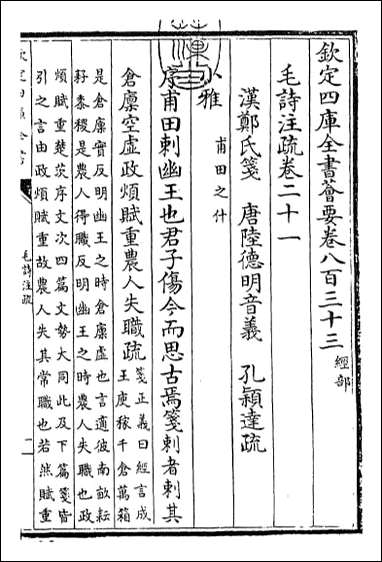 欽定四庫全書薈要卷八百三十三 經部
毛詩注疏卷二十一
漢鄭氏箋 唐陸德明音義 孔穎達疏
小雅 甫田之什
序甫田刺幽王也君子傷今而思古焉箋刺者刺其
倉廩空虚政煩賦重農人失職疏 箋正義曰經言成
王庾稼千倉萬箱
是倉廩實反明幽王之時倉廩虚也言適彼南畝耘
耔黍稷是農人得職反明幽王之時農人失職也政
煩賦重楚茨序文次四篇文勢大同此及下篇箋皆
引之言由政煩賦重故農人失其常職也若然賦重
毛詩注疏
一